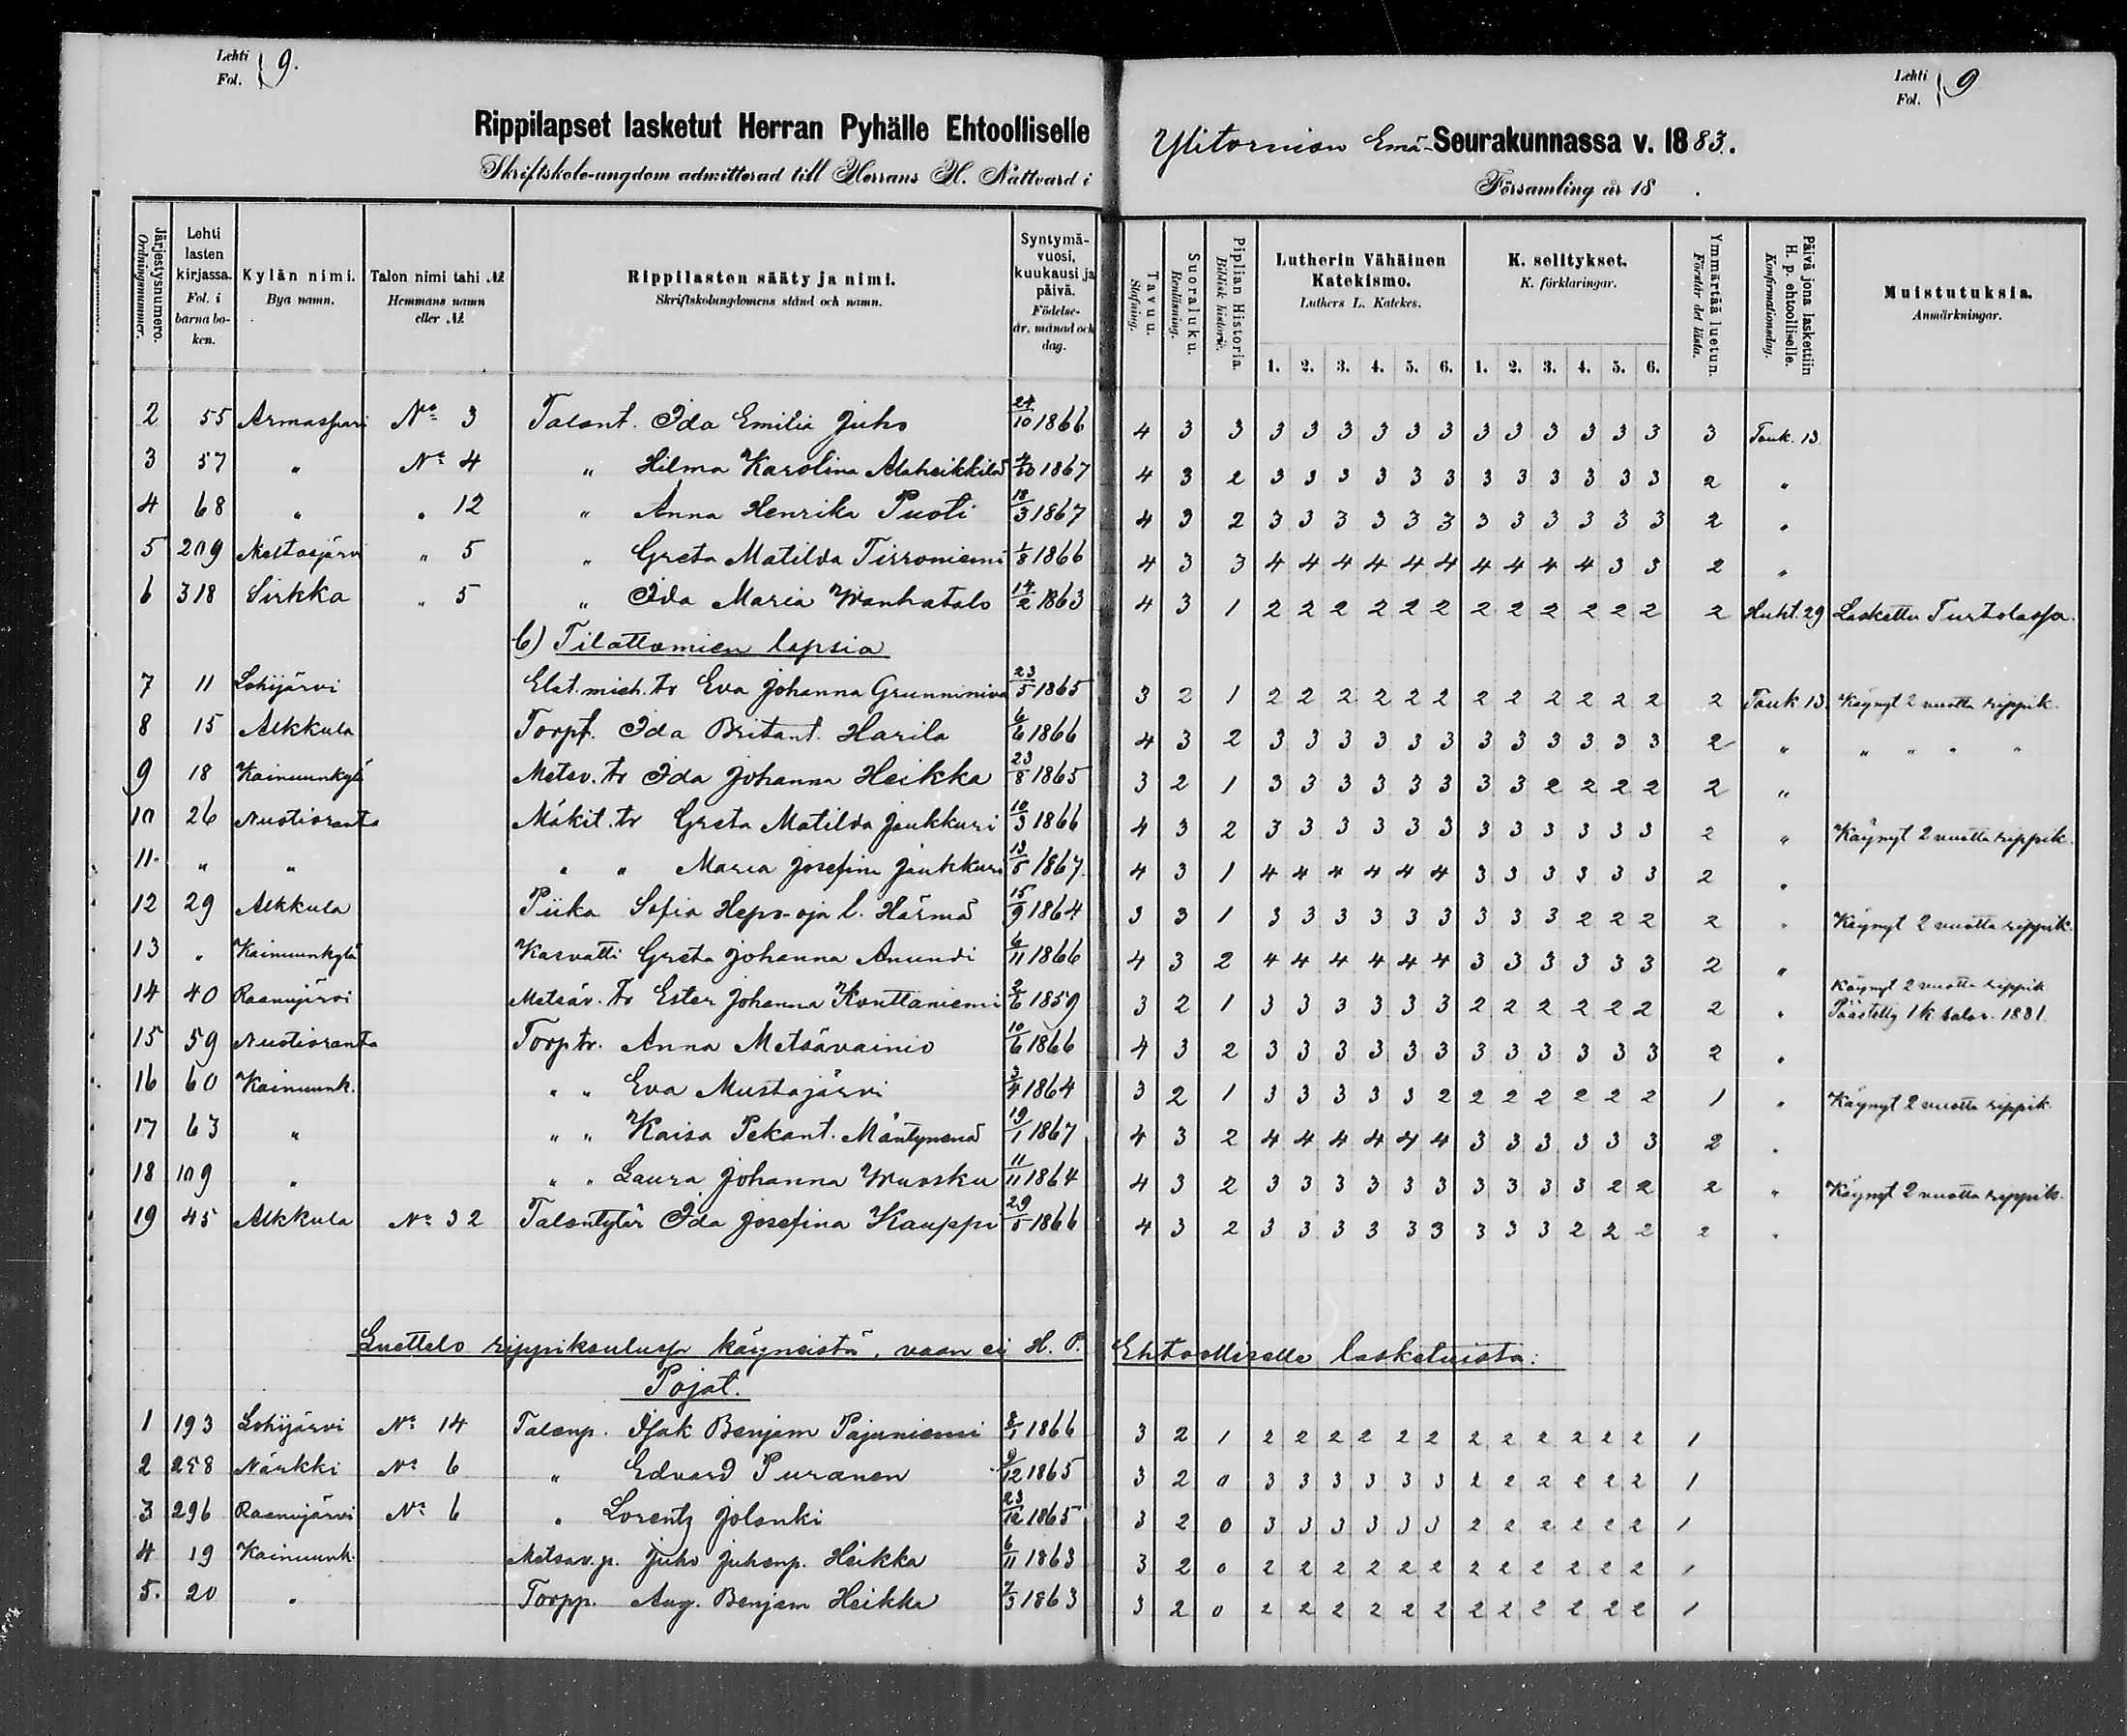 Lehti Fol. } 9.
Rippilapset lasketut Herran Pyhälle Ehtoolliselle
Skriftskole-ungdom admitterad till Herrans H. Nattvard i
Lehti Fol. } 9
Ylitornion Emä-Seurakunnassa v. 1883.
Församling år 18 .
Järjestysnumero. Ordningsnummer. | Lehti lasten kirjassa. Fol. i barnaboken. | Kylän nimi. Bya namn. | Talon nimi tahi № Hemmans namn eller № | Rippilasten sääty ja nimi. Skriftskolungdomens stånd och namn. | Syntymävuosi, kuukausi ja päivä. Födelseår, månad och dag. | Tavuu. Stafning. | Suoraluku. Renläsning. | Piplian Historia. Biblisk historie. | Lutherin Vähäinen Katekismo. Luthers L. Katekes. 1. 2. 3. 4. 5. 6. | K. selitykset. K. förklaringar. 1. 2. 3. 4. 5. 6. | Ymmärtää luetun. Förstår det lästa. | Päivä jona laskettiin H. p. ehtoolliselle. Konfirmationsdag. | Muistutuksia. Anmärkningar.
2 55 Armassaari No 3 Talont. Ida Emilia Juho 24/10 1866 4 3 3 3 3 3 3 3 3 3 3 3 3 3 3 3 Touk. 13.
3 57 " No 4 " Hilma Karolina Alaheikkilä 4/10 1867 4 3 2 3 3 3 3 3 3 3 3 3 3 3 3 2 "
4 68 " " 12 " Anna Henrika Puoti 18/3 1867 4 3 2 3 3 3 3 3 3 3 3 3 3 3 3 2 "
5 209 Meltosjärvi " 5 " Greta Matilda Tirroniemi 1/8 1866 4 3 3 4 4 4 4 4 4 4 4 4 4 3 3 2 "
6 318 Sirkka " 5 " Ida Maria Wanhatalo 14/2 1863 4 3 1 2 2 2 2 2 2 2 2 2 2 2 2 2 Huht. 29 Laskettu Turtolassa.
b) Tilattomien lapsia
7 11 Lohijärvi Elat. mieh. tr Eva Johanna Grunniniva 23/5 1865 3 2 1 2 2 2 2 2 2 2 2 2 2 2 2 2 Touk 13. Käynyt 2 vuotta rippik.
8 15 Alkkula Torpt. Ida Britant. Harila 6/6 1866 4 3 2 3 3 3 3 3 3 3 3 3 3 3 3 2 " " " " "
9 18 Kainuunkylä Metsv. tr Ida Johanna Heikka 23/8 1865 3 2 1 3 3 3 3 3 3 3 3 2 2 2 2 2 "
10 26 Nuotioranta Mäkit. tr Greta Matilda Jaukkuri 10/3 1866 4 3 2 3 3 3 3 3 3 3 3 3 3 3 3 2 " Käynyt 2 vuotta rippik.
11. " " " " Maria Josefina Jaukkuri 13/5 1867. 4 3 1 4 4 4 4 4 4 3 3 3 3 3 3 2 "
12 29 Alkkula Piika Sofia Hepo-oja l. Härmä 15/9 1864 3 3 1 3 3 3 3 3 3 3 3 3 2 2 2 2 " Käynyt 2 vuotta rippik.
13 " Kainuunkylä Kasvatti Greta Johanna Anundi 6/11 1866 4 3 2 4 4 4 4 4 4 3 3 3 3 3 3 2 "
14 40 Raanujärvi Metsäv. tr Ester Johanna Konttaniemi 2/6 1859 3 2 1 3 3 3 3 3 3 2 2 2 2 2 2 2 " Käynyt 2 vuotta rippik. Päästetty 1 k. salav. 1881.
15 59 Nuotioranta Torp tr. Anna Metsävainio 10/6 1866 4 3 2 3 3 3 3 3 3 3 3 3 3 3 3 2 "
16 60 Kainuunk. " " Eva Mustajärvi 3/4 1864 3 2 1 3 3 3 3 3 2 2 2 2 2 2 2 1 " Käynyt 2 vuotta rippik.
17 63 " " " Kaisa Pekant. Mäntynenä 19/1 1867 4 3 2 4 4 4 4 4 4 3 3 3 3 3 3 2 "
18 109 " " " Laura Johanna Wuosku 11/11 1864 4 3 2 3 3 3 3 3 3 3 3 3 3 2 2 2 " Käynyt 2 vuotta rippik.
19 45 Alkkula No 32 Talontytär Ida Josefina Kauppi 29/5 1866 4 3 2 3 3 3 3 3 3 3 3 3 2 2 2 2 "
Luettelo rippikoulussa käyneistä, vaan ei H. P. Ehtoolliselle lasketuista:
Pojat.
1 193 Lohijärvi No 14 Talonp. Isak Benjam Pajuniemi 8/1 1866 3 2 1 2 2 2 2 2 2 2 2 2 2 2 2 1
2 258 Närkki No 6 " Edvard Puranen 9/12 1865 3 2 0 3 3 3 3 3 3 2 2 2 2 2 2 1
3 296 Raanujärvi No 6 " Lorentz Jolanki 23/12 1865 3 2 0 3 3 3 3 3 3 2 2 2 2 2 2 1
4 19 Kainuunk. Metsäv. p. Juho Juhonp. Heikka 6/11 1863 3 2 0 2 2 2 2 2 2 2 2 2 2 2 2 1
5. 20 " Torpp. Aug. Benjam Heikka 7/3 1863 3 2 0 2 2 2 2 2 2 2 2 2 2 2 2 1